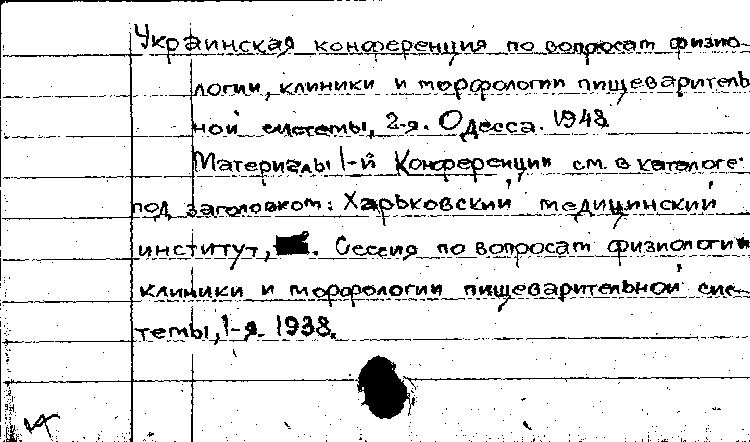 Украинская конференция по вопросам физио-
логии, клиники и морфологии пищеваритель
ной системы, 2-я. Одесса. 1948
Материалы 1-й Конференции см. в каталоге
под заголовком: Харьковский медицинский
институт, . Сессия по вопросам физиологии
клиники и морфологии пищеварительной сис-
темы, 1-я. 1938.